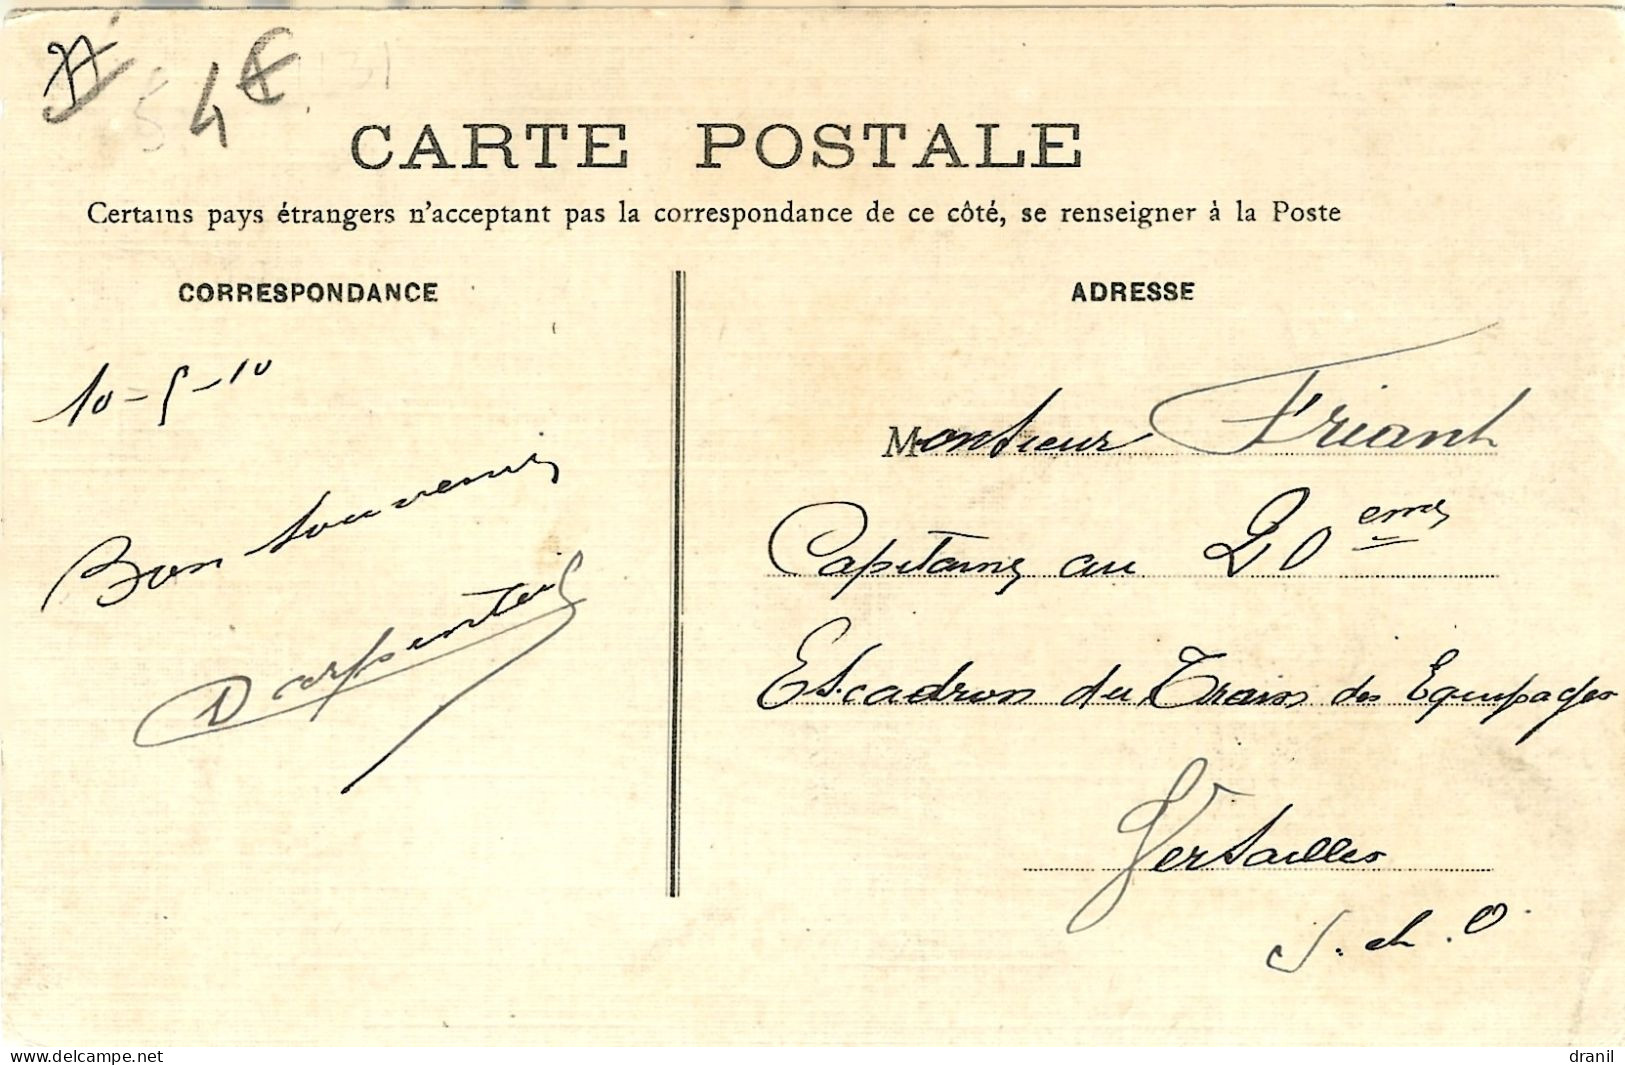 4€
CARTE POSTALE
Certains pays étrangers n'acceptant pas la correspondance de ce côté, se renseigner à la Poste
CORRESPONDANCE
10-5-10
Bon souvenir
ADRESSE
Monsieur Friant
Capitaine au 20eme
Escadron du Train des Equipages
Versailles
S. et. O.
www.delcampe.net
dranil